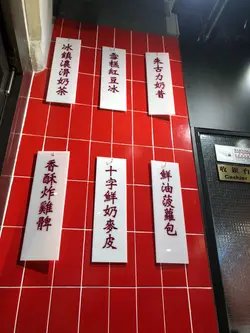 冰鎮濃滑奶茶
雪糕紅豆冰
朱古力奶昔
香酥炸雞髀
十字鮮奶麥皮
鮮油菠蘿包
收銀台
Cashier